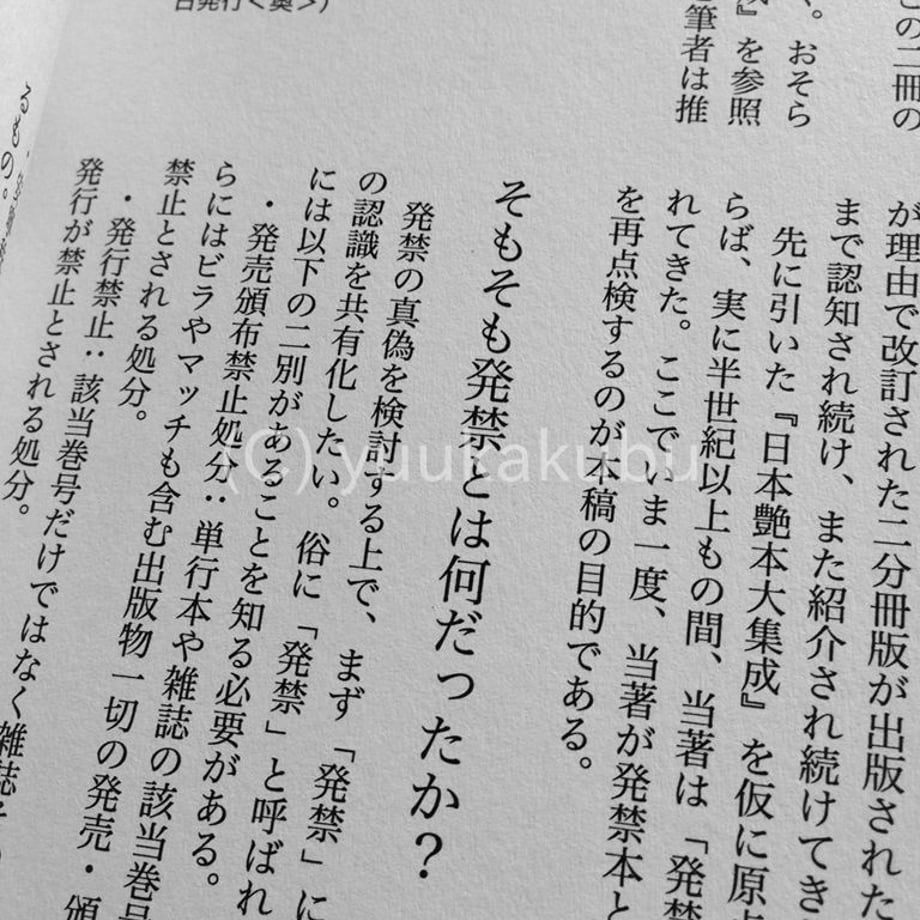 この二冊の
く。おそら
』を参照
筆者は推
日発行<奥>)
が理由で改訂された二分冊版が出版された
まで認知され続け、また紹介され続けてき
先に引いた『日本艶本大集成』を仮に原
らば、実に半世紀以上もの間、当著は「発禁
れてきた。ここでいま一度、当著が発禁本と
を再点検するのが本稿の目的である。
そもそも発禁とは何だったか?
発禁の真偽を検討する上で、まず「発禁」に
の認識を共有化したい。俗に「発禁」と呼ばれ
には以下の二別があることを知る必要がある。
・発売頒布禁止処分:単行本や雑誌の該当巻号
らにはビラやマッチも含む出版物一切の発売・頒
禁止とされる処分。
・発行禁止:該当巻号だけではなく雑誌そ
発行が禁止とされる処分。
るもの。
(C) yuukakubu